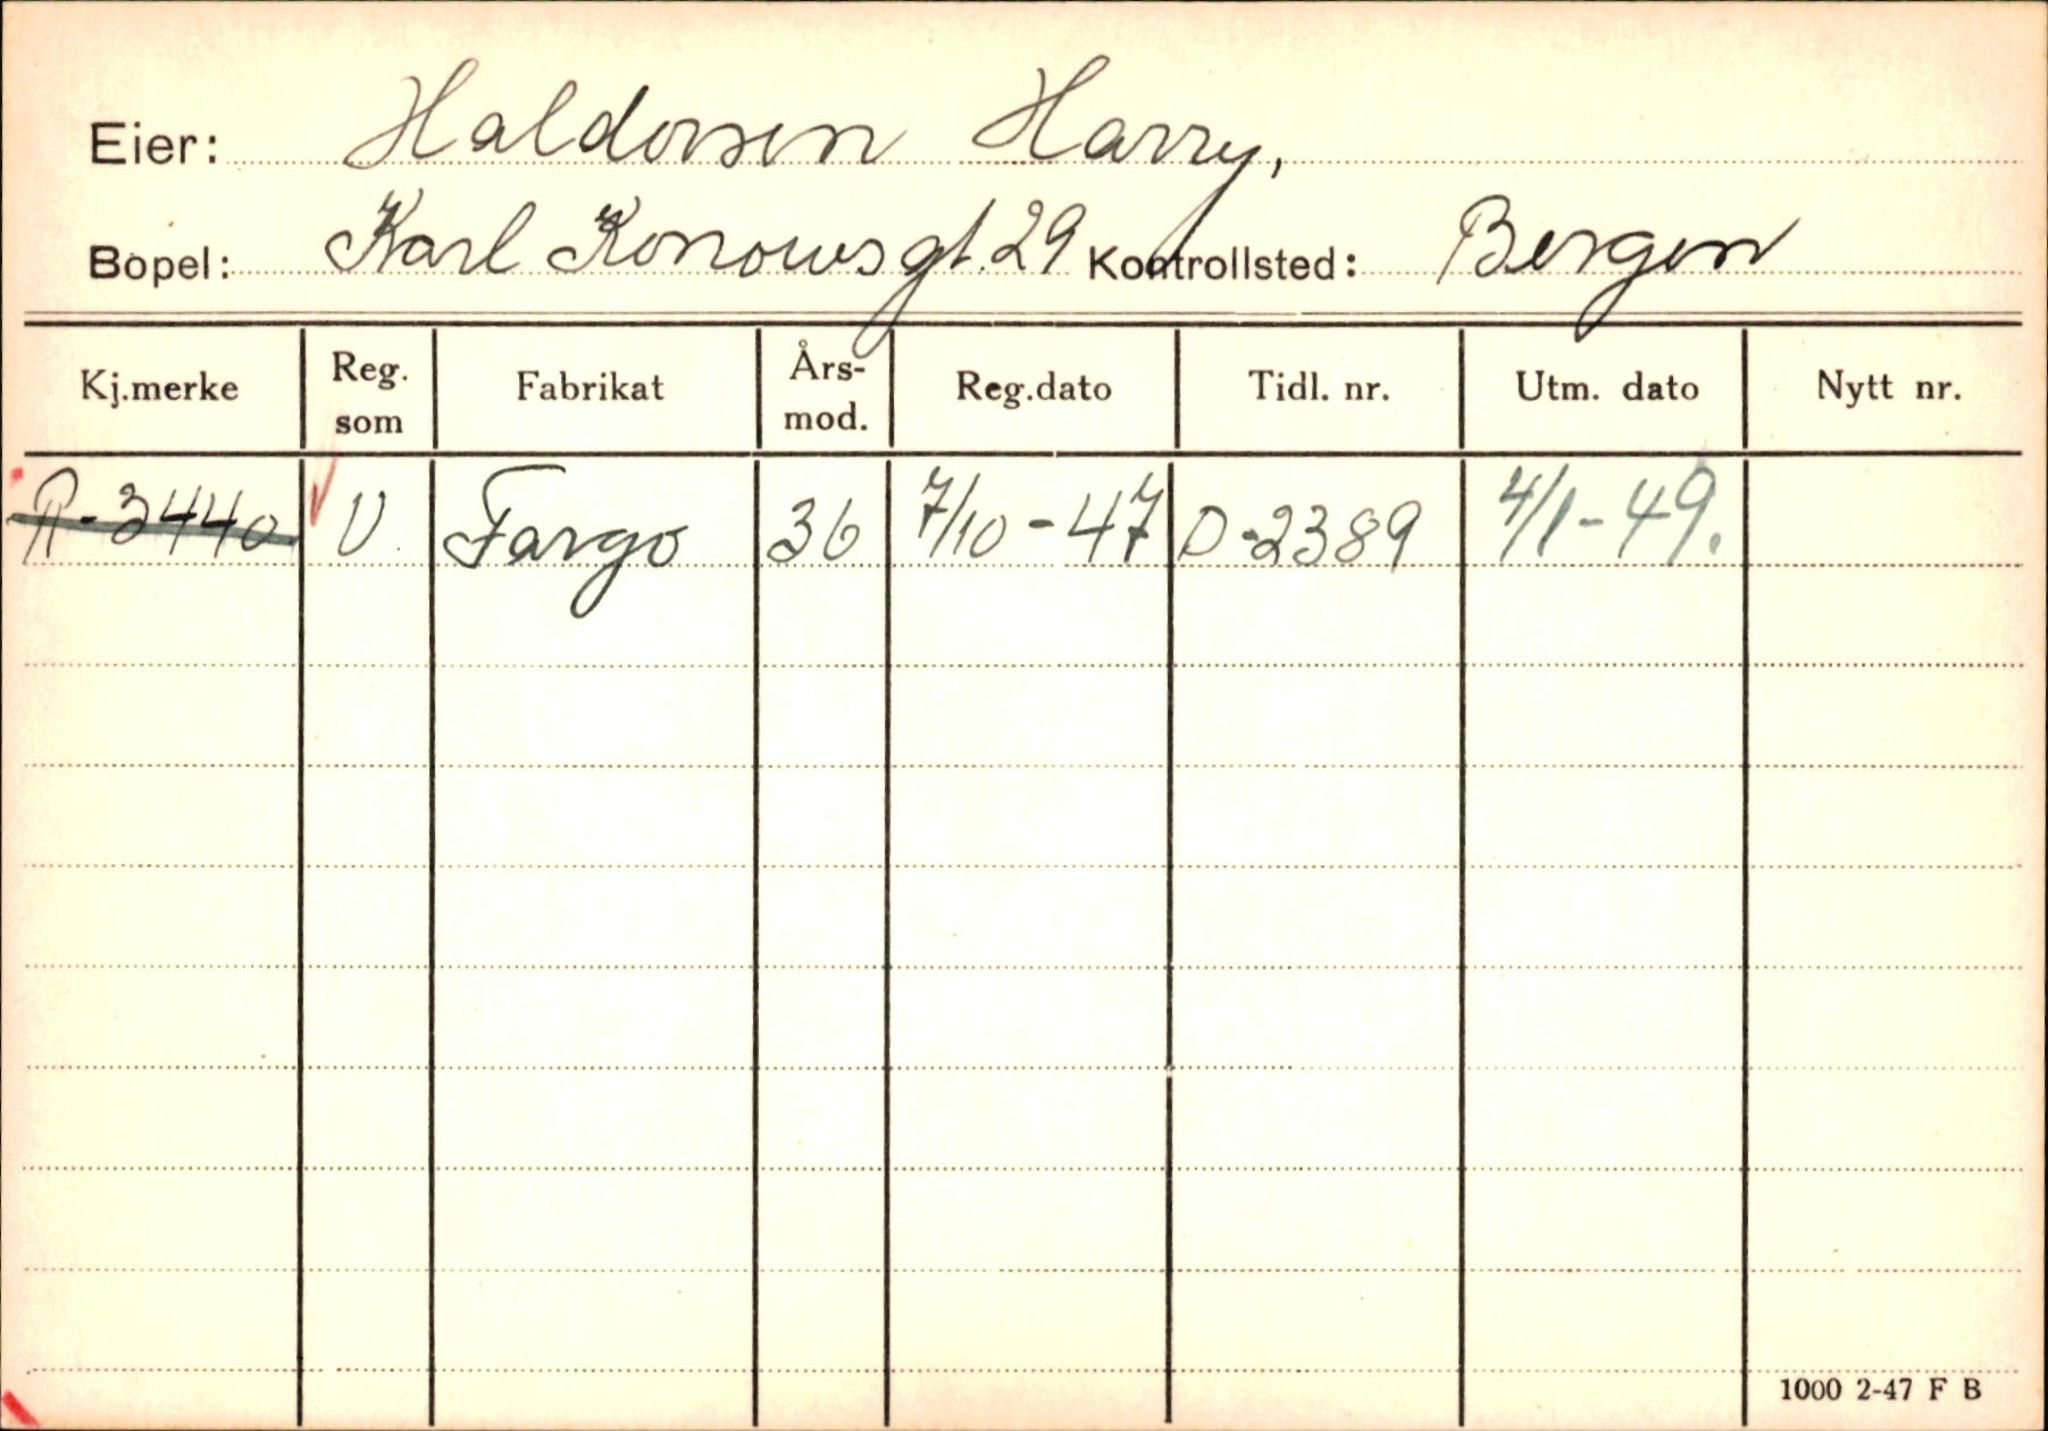 Eier: Haldorsen Harry,
Bopel: Karl Konows gt. 29 Kontrollsted: Bergen
Kj.merke Reg. som Fabrikat Års-mod. Reg.dato Tidl. nr. Utm. dato Nytt nr.
R-3440 V Fargo 36 7/10-47 D-2389 4/1-49.
1000 2-47 F B